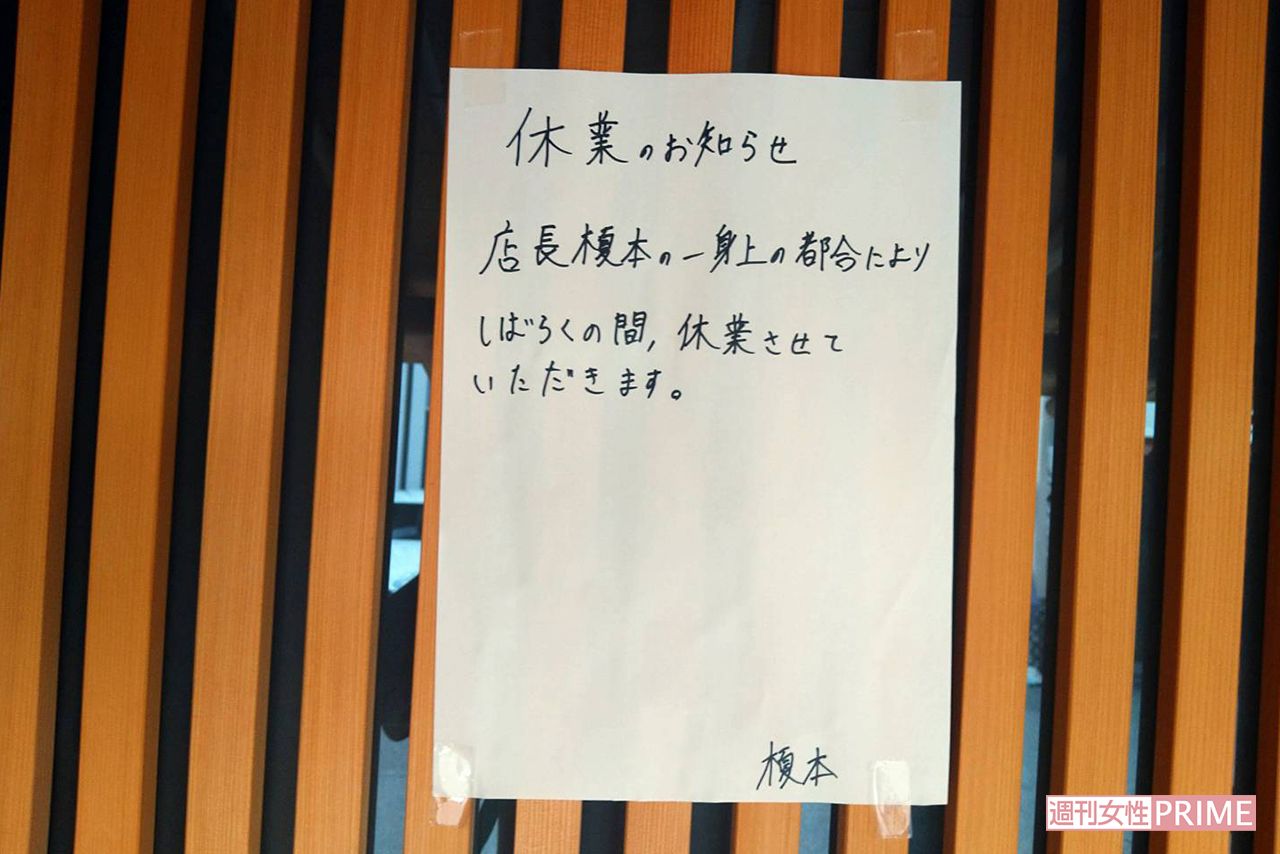 休業のお知らせ
店長榎本の一身上の都合により
しばらくの間,休業させて
いただきます。
榎本
週刊女性PRIME